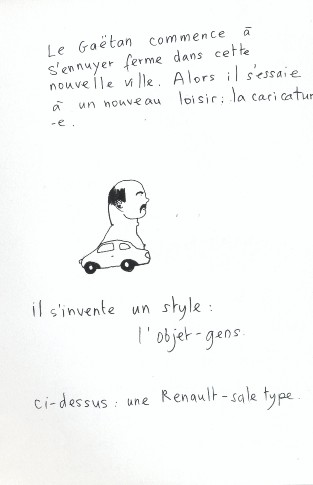 Le Gaëtan commence à
s'ennuyer ferme dans cette
nouvelle ville. Alors il s'essaie
à un nouveau loisir : la caricatur
-e.
il s'invente un style :
l'objet-gens.
ci-dessus : une Renault-sale type.